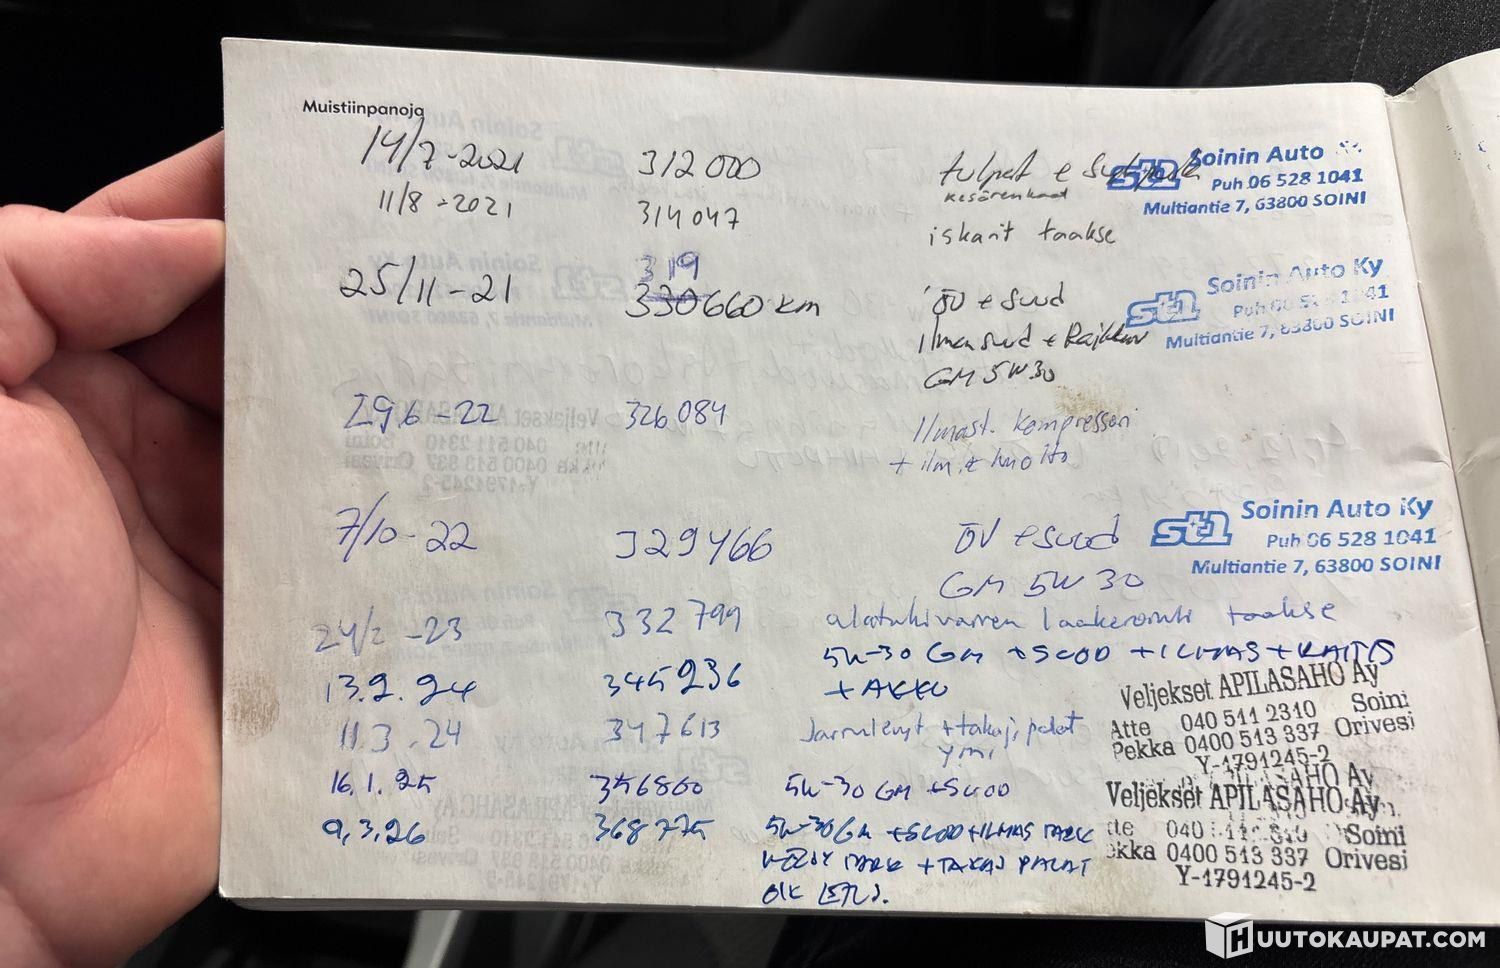 Muistiinpanoja
14/7-2021 312 000 tulpat + st1 Soinin Auto
Puh 06 528 1041
Multiantie 7, 63800 SOINI
kesärenkaat
11/8-2021 314 047 iskarit taakse
319
25/11-21 330660 km ÖV + Suod
st1 Soinin Auto Ky
Puh 06 528 1041
Multiantie 7, 63800 SOINI
Ilmansuod +
GM 5W30
29.6-22 326 084 Ilmast. kompressori
+ ilm. huolto
7/10-22 329466 ÖV + suod
st1 Soinin Auto Ky
Puh 06 528 1041
Multiantie 7, 63800 SOINI
GM 5W30
24/2-23 332 799 alatukivarren taakse
5W-30 GM + SUOD + ILMAS + RAITIS
13.2.24 345236 + AKKU
Veljekset APILASAHO Ay
Atte 040 511 2310 Soini
Pekka 0400 513 337 Orivesi
Y-1791245-2
11.3.24 347613 Jarrulevyt + takaj. palat
ymi
16.1.25 356860 5W-30 GM + SUOD
Veljekset APILASAHO Ay
Soini
0400 513 337 Orivesi
Y-1791245-2
9.3.26 368775 5W-30 GM + SUOD + ILMAS TARK
TARK + TAKAJ PALAT
HUUTOKAUPAT.COM